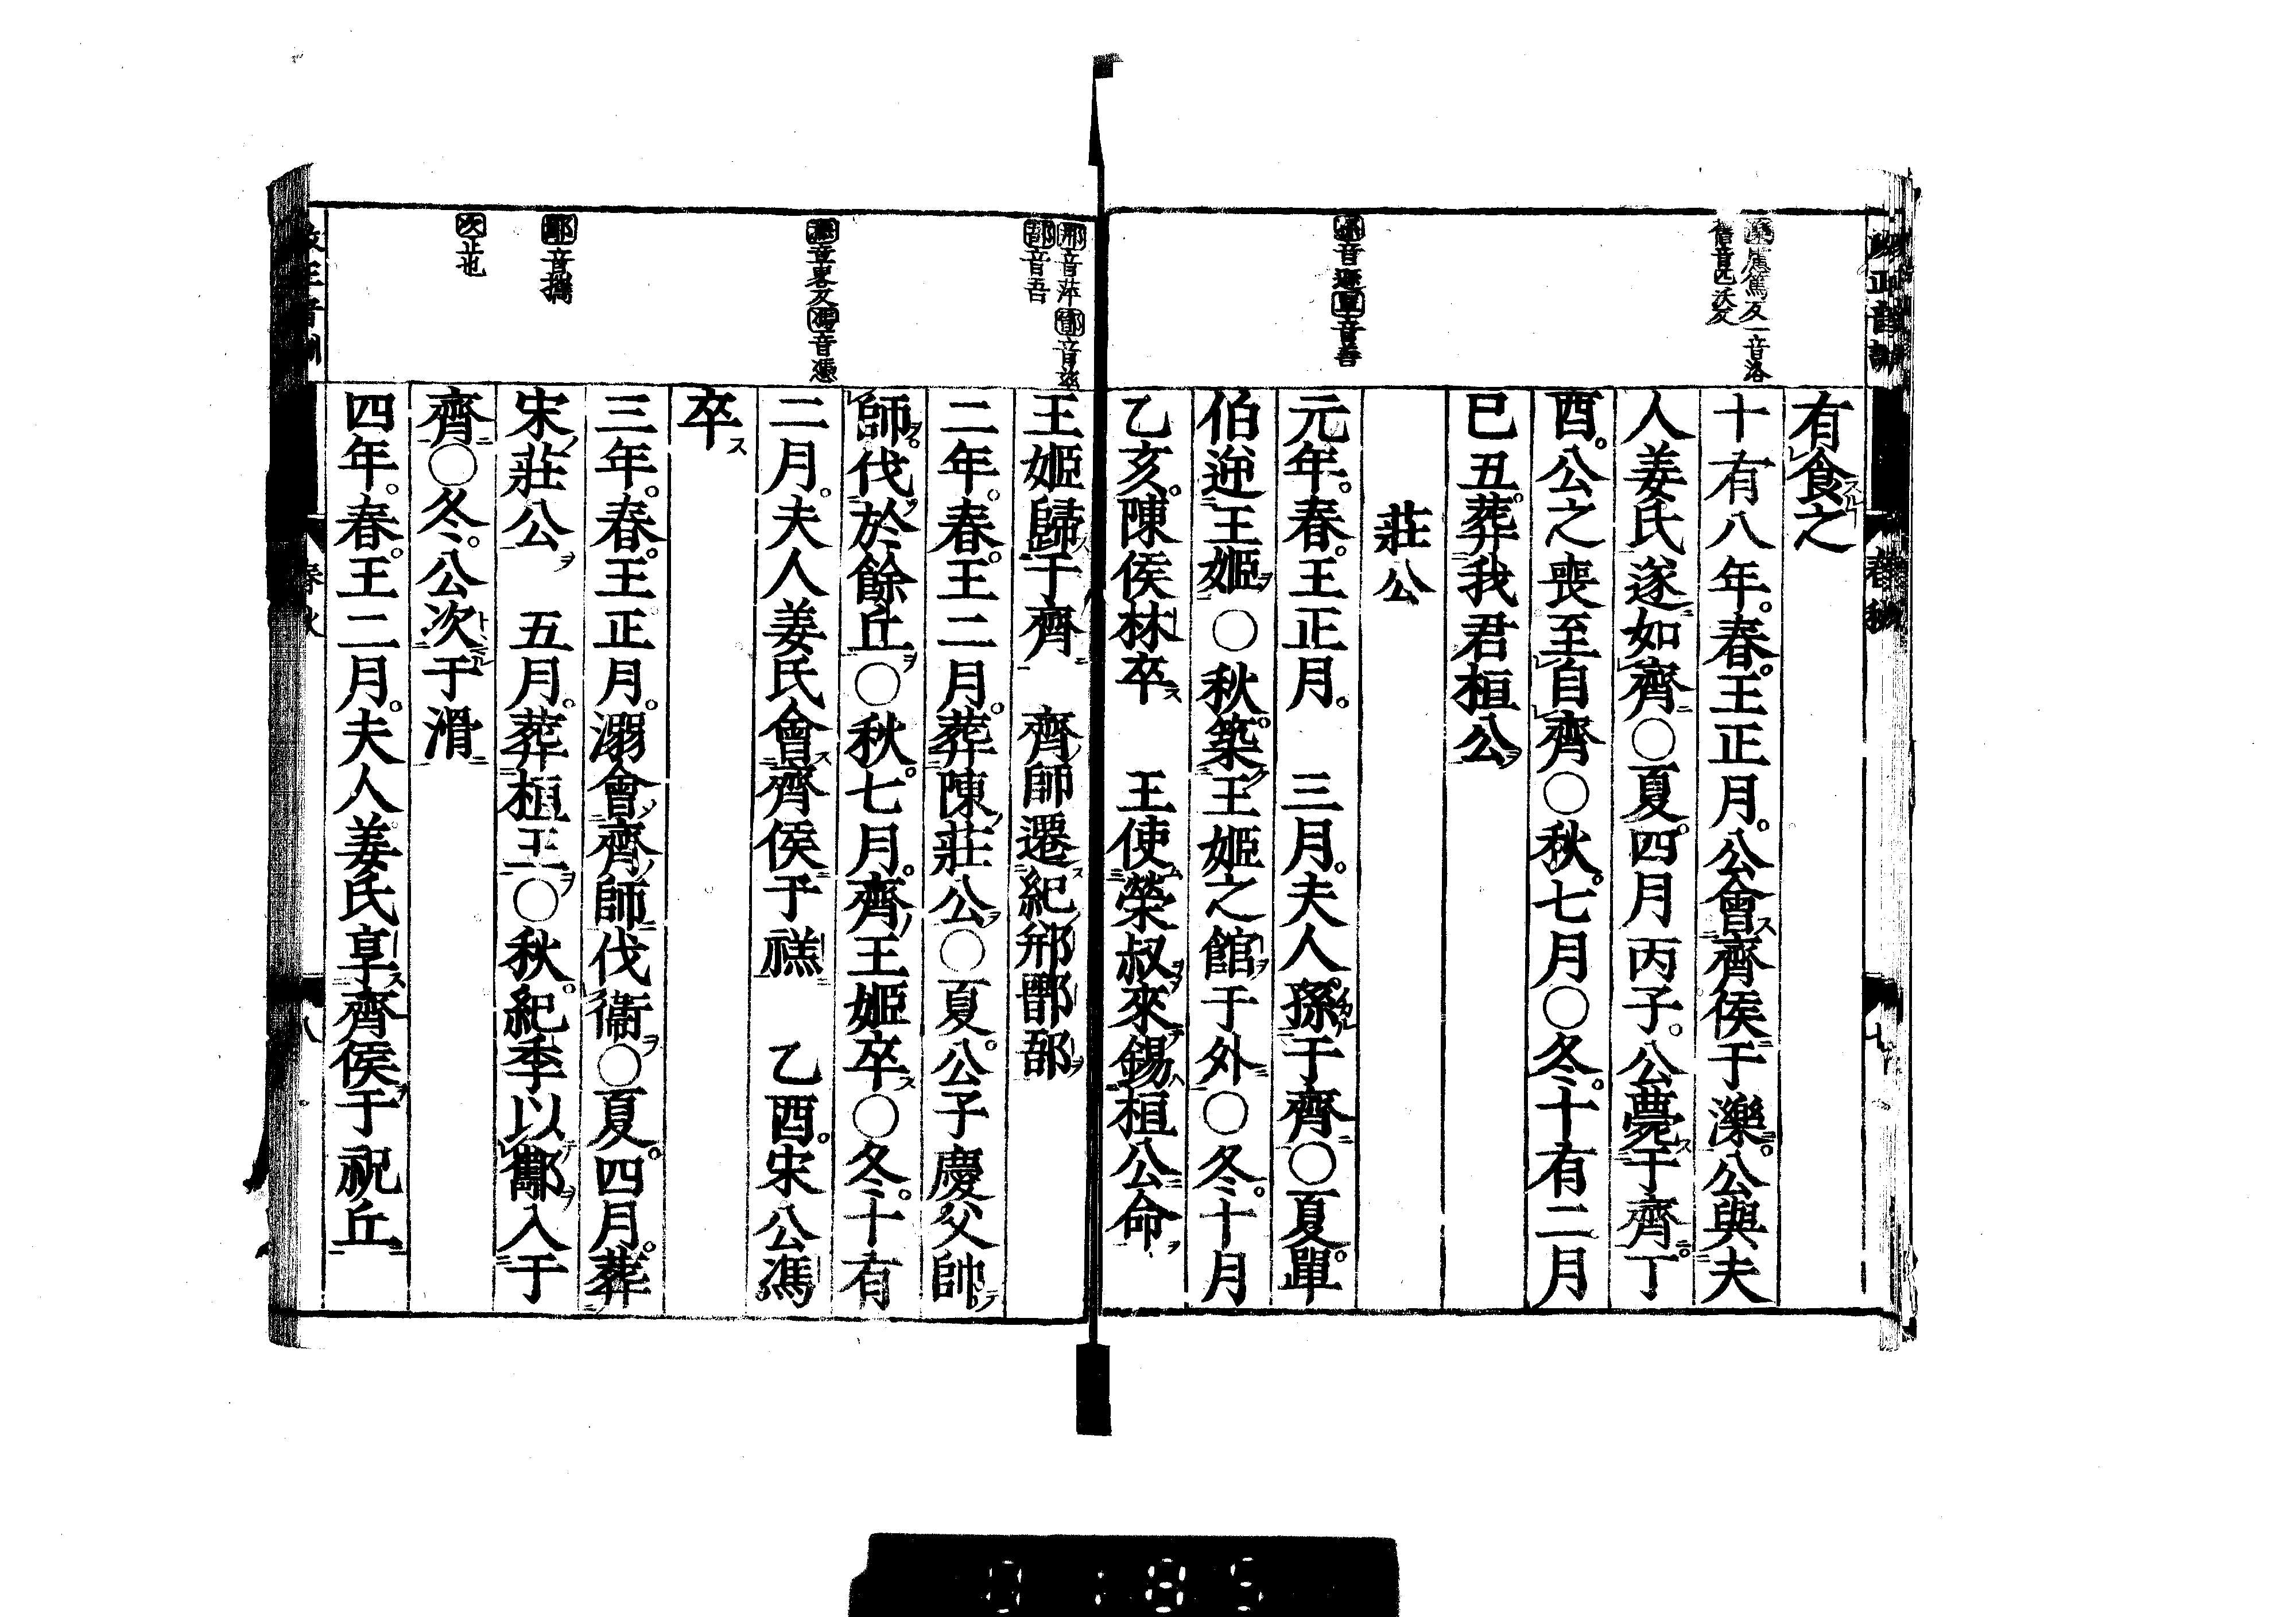 濼盧篤反一音洛
舊音匹沃反
有食之
十有八年。春。王正月。公會齊侯于濼。公與夫
人姜氏遂如齊○夏。四月丙子。公薨于齊。丁
酉。公之喪至自齊○秋。七月○冬。十有二月
己丑。葬我君桓公
莊公
音
元年。春。王正月。 三月。夫人。孫于齊○夏。單
伯逆王姬○秋。築王姬之館于外○冬。十月
乙亥。陳侯林卒 王使榮叔來錫桓公命
郱音萍鄑音
郚音吾
王姬歸于齊 齊師遷紀郱鄑郚
二年。春。王二月。葬陳莊公○夏。公子慶父帥
師。伐於餘丘○秋。七月。齊王姬卒○冬。十有
章畧反馮音憑
二月。夫人姜氏會齊侯于禚 乙酉。宋公馮
卒
三年。春。王正月。溺會齊師伐衞○夏。四月。葬
酅音攜
宋莊公 五月。葬桓王○秋。紀季以酅入于
次止也
齊○冬。公次于滑
四年。春。王二月。夫人姜氏享齊侯于祝丘
春秋
八
0185